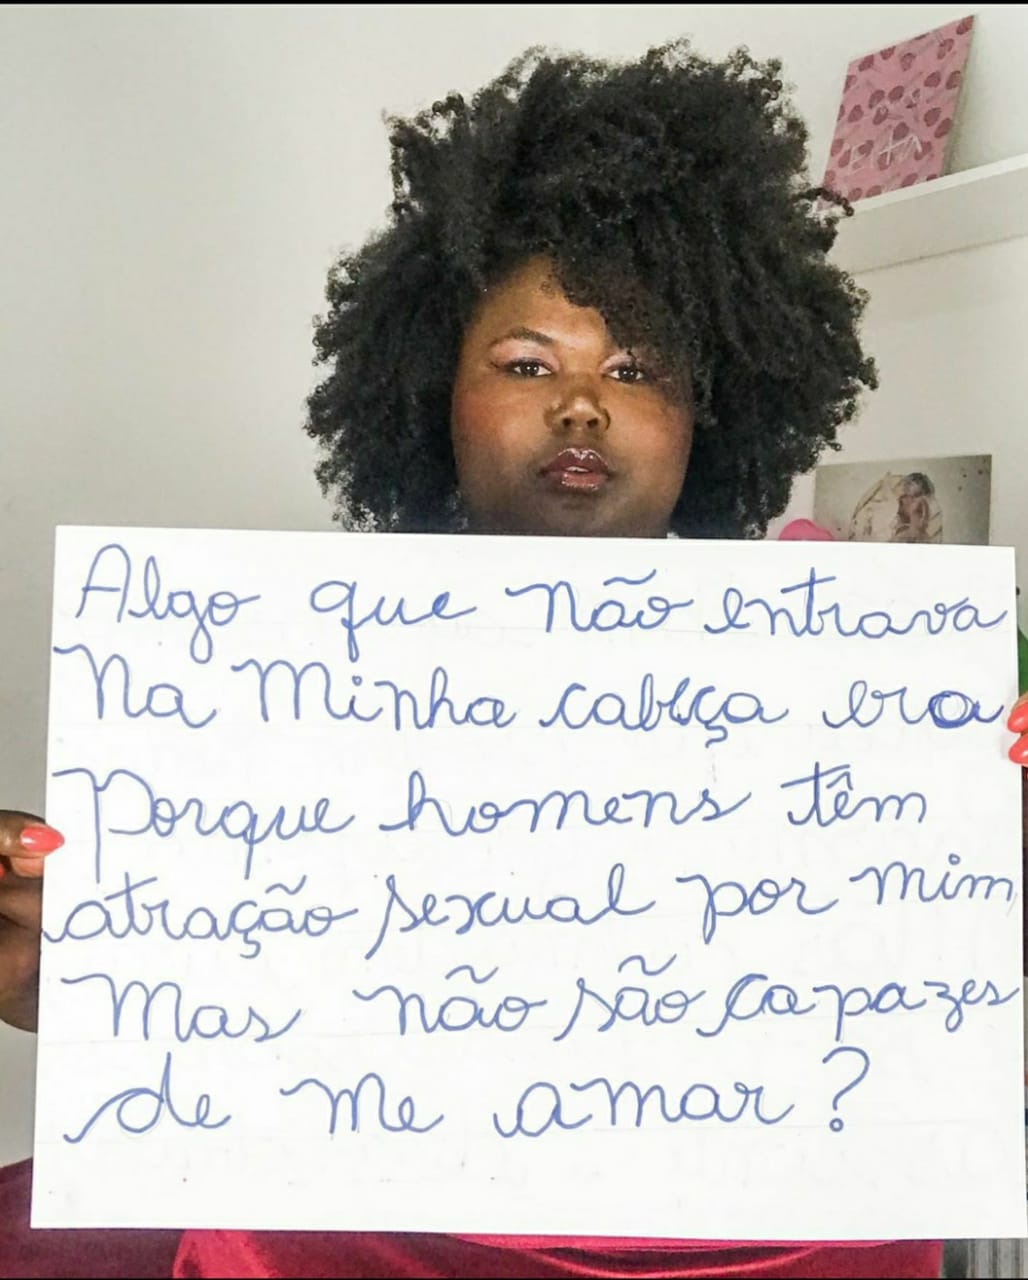 Algo que não entrava
Na Minha cabeça era
Porque homens têm
atração sexual por mim
Mas não são capazes
de me amar?